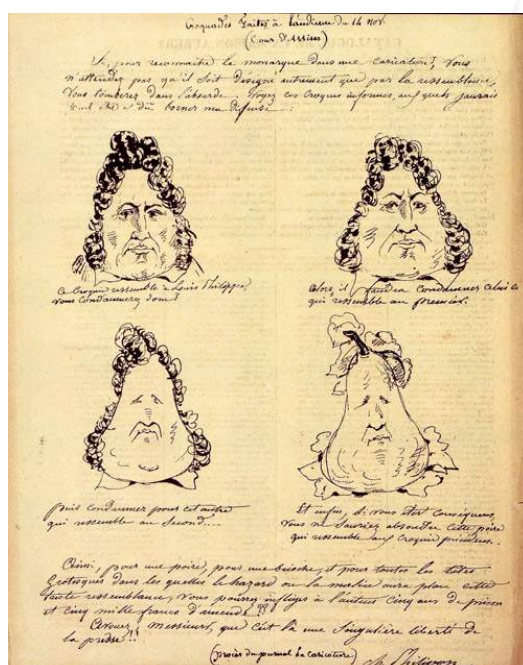 Croquades faites à l'audience du 14 Nov.
(Cour d'Assises)
Si, pour reconnaître le monarque dans une caricature, vous
n'attendez pas qu'il soit désigné autrement que par la ressemblance,
vous tomberez dans l'absurde. Voyez ces croquis informes, aux quels j'aurais
peut-être dû borner ma défense :
Ce Croquis ressemble à Louis Philippe,
vous condamnerez donc?
Alors il faudra condamner celui-ci
qui ressemble au premier.
puis condamner pour cet autre
qui ressemble au second...
Et enfin, si vous êtes conséquens,
vous ne sauriez absoudre cette poire
qui ressemble aux Croquis précédens.
Ainsi, pour une poire, pour une brioche, et pour toutes les têtes
Grotesques dans les quelles le hazard ou la malice aura placé cette
triste ressemblance, vous pourrez infliger à l'auteur cinq ans de prison
et cinq mille francs d'amende??
Avouez, Messieurs, que c'est là une Singulière liberté de
la presse!!
(procès du journal la Caricature)
Ch. Philipon